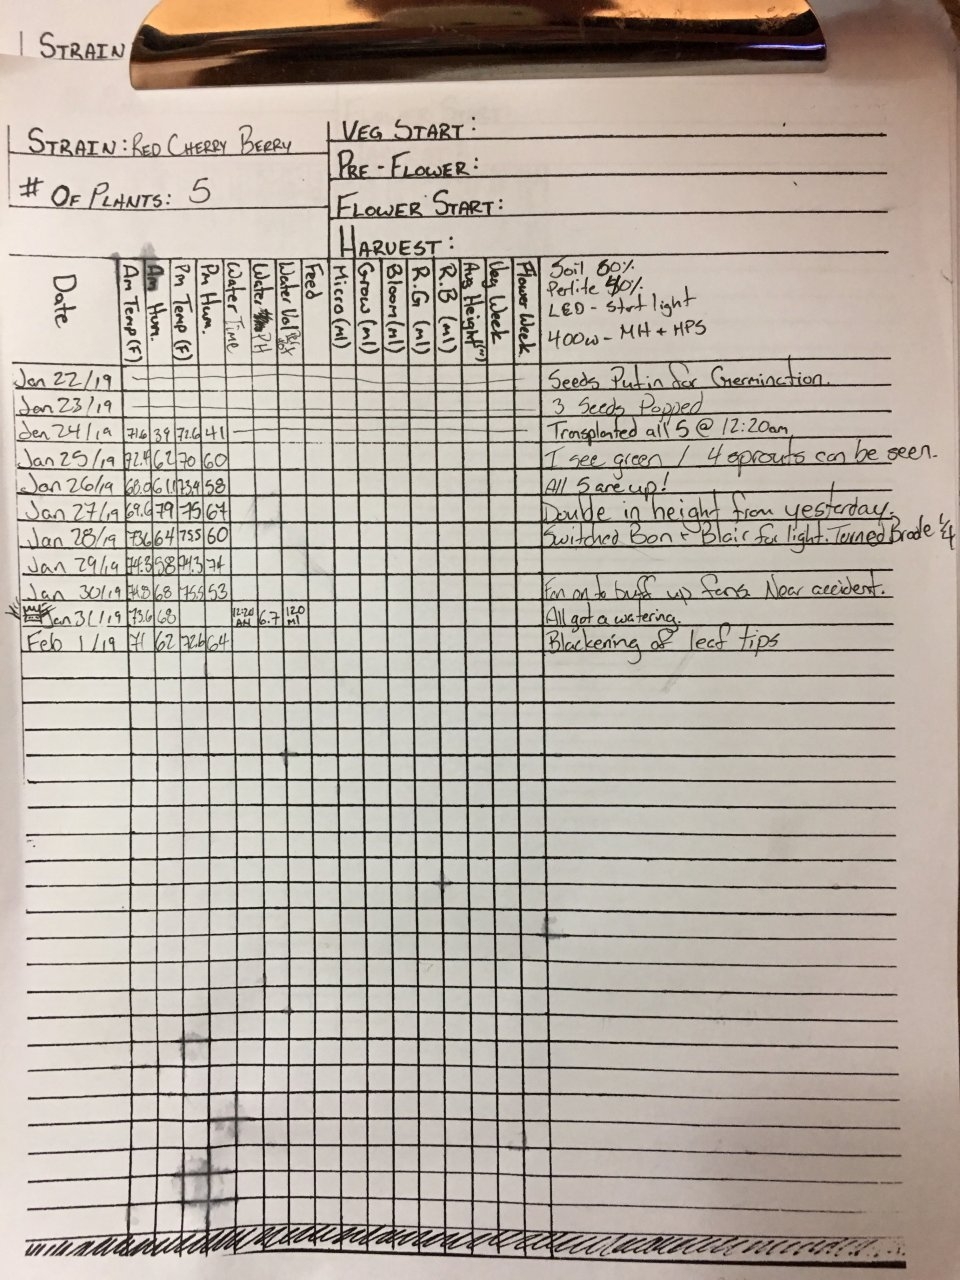 STRAIN
STRAIN: RED CHERRY BERRY
# OF PLANTS: 5
VEG START:
PRE-FLOWER:
FLOWER START:
HARVEST:
Date
Am Temp (F)
Am Hum.
Pm Temp (F)
Pm Hum.
Water Time
Water PH
Water Vol
Feed
Micro (ml)
Grow (ml)
Bloom (ml)
R.G (ml)
R.B (ml)
Avg Height (in)
Veg Week
Flower Week
Soil 60%
Perlite 40%
LED - start light
400w - MH + HPS
Jan 22/19 Seeds Put in for Germination.
Jan 23/19 3 Seeds Popped
Jan 24/19 71.6 39 72.6 41 Transplanted all 5 @ 12:20am
Jan 25/19 72.4 62 70 60 I see green / 4 sprouts can be seen.
Jan 26/19 68.0 61.1 73.9 58 All 5 are up!
Jan 27/19 69.6 79 75 67 Double in height from yesterday.
Jan 28/19 73.6 64 75.5 60 Switched Bon + Blair for light. Turned Brode 1/4
Jan 29/19 74.3 58 74.3 74
Jan 30/19 74.8 68 75.5 53 Fan on to buff up fans. Near accident.
Jan 31/19 73.6 68 12:20 AM 6.7 120 ml All got a watering.
Feb 1/19 71 62 72.6 64 Blackening of leaf tips